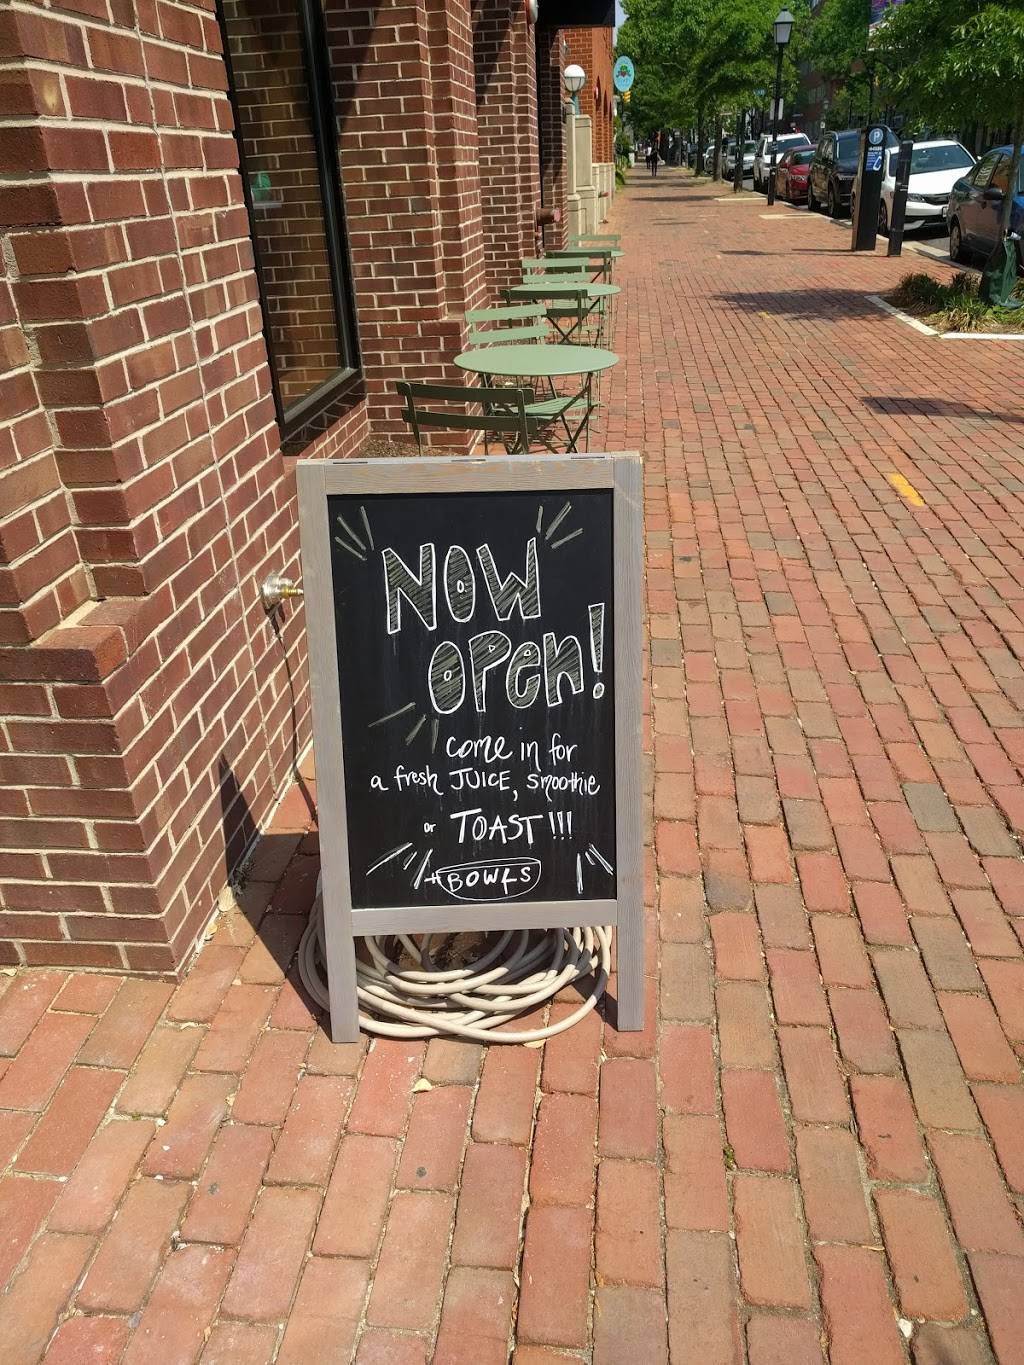 NOW
OPen!
come in for
a fresh JUICE, smoothie
or TOAST!!!
+BOWLS
P